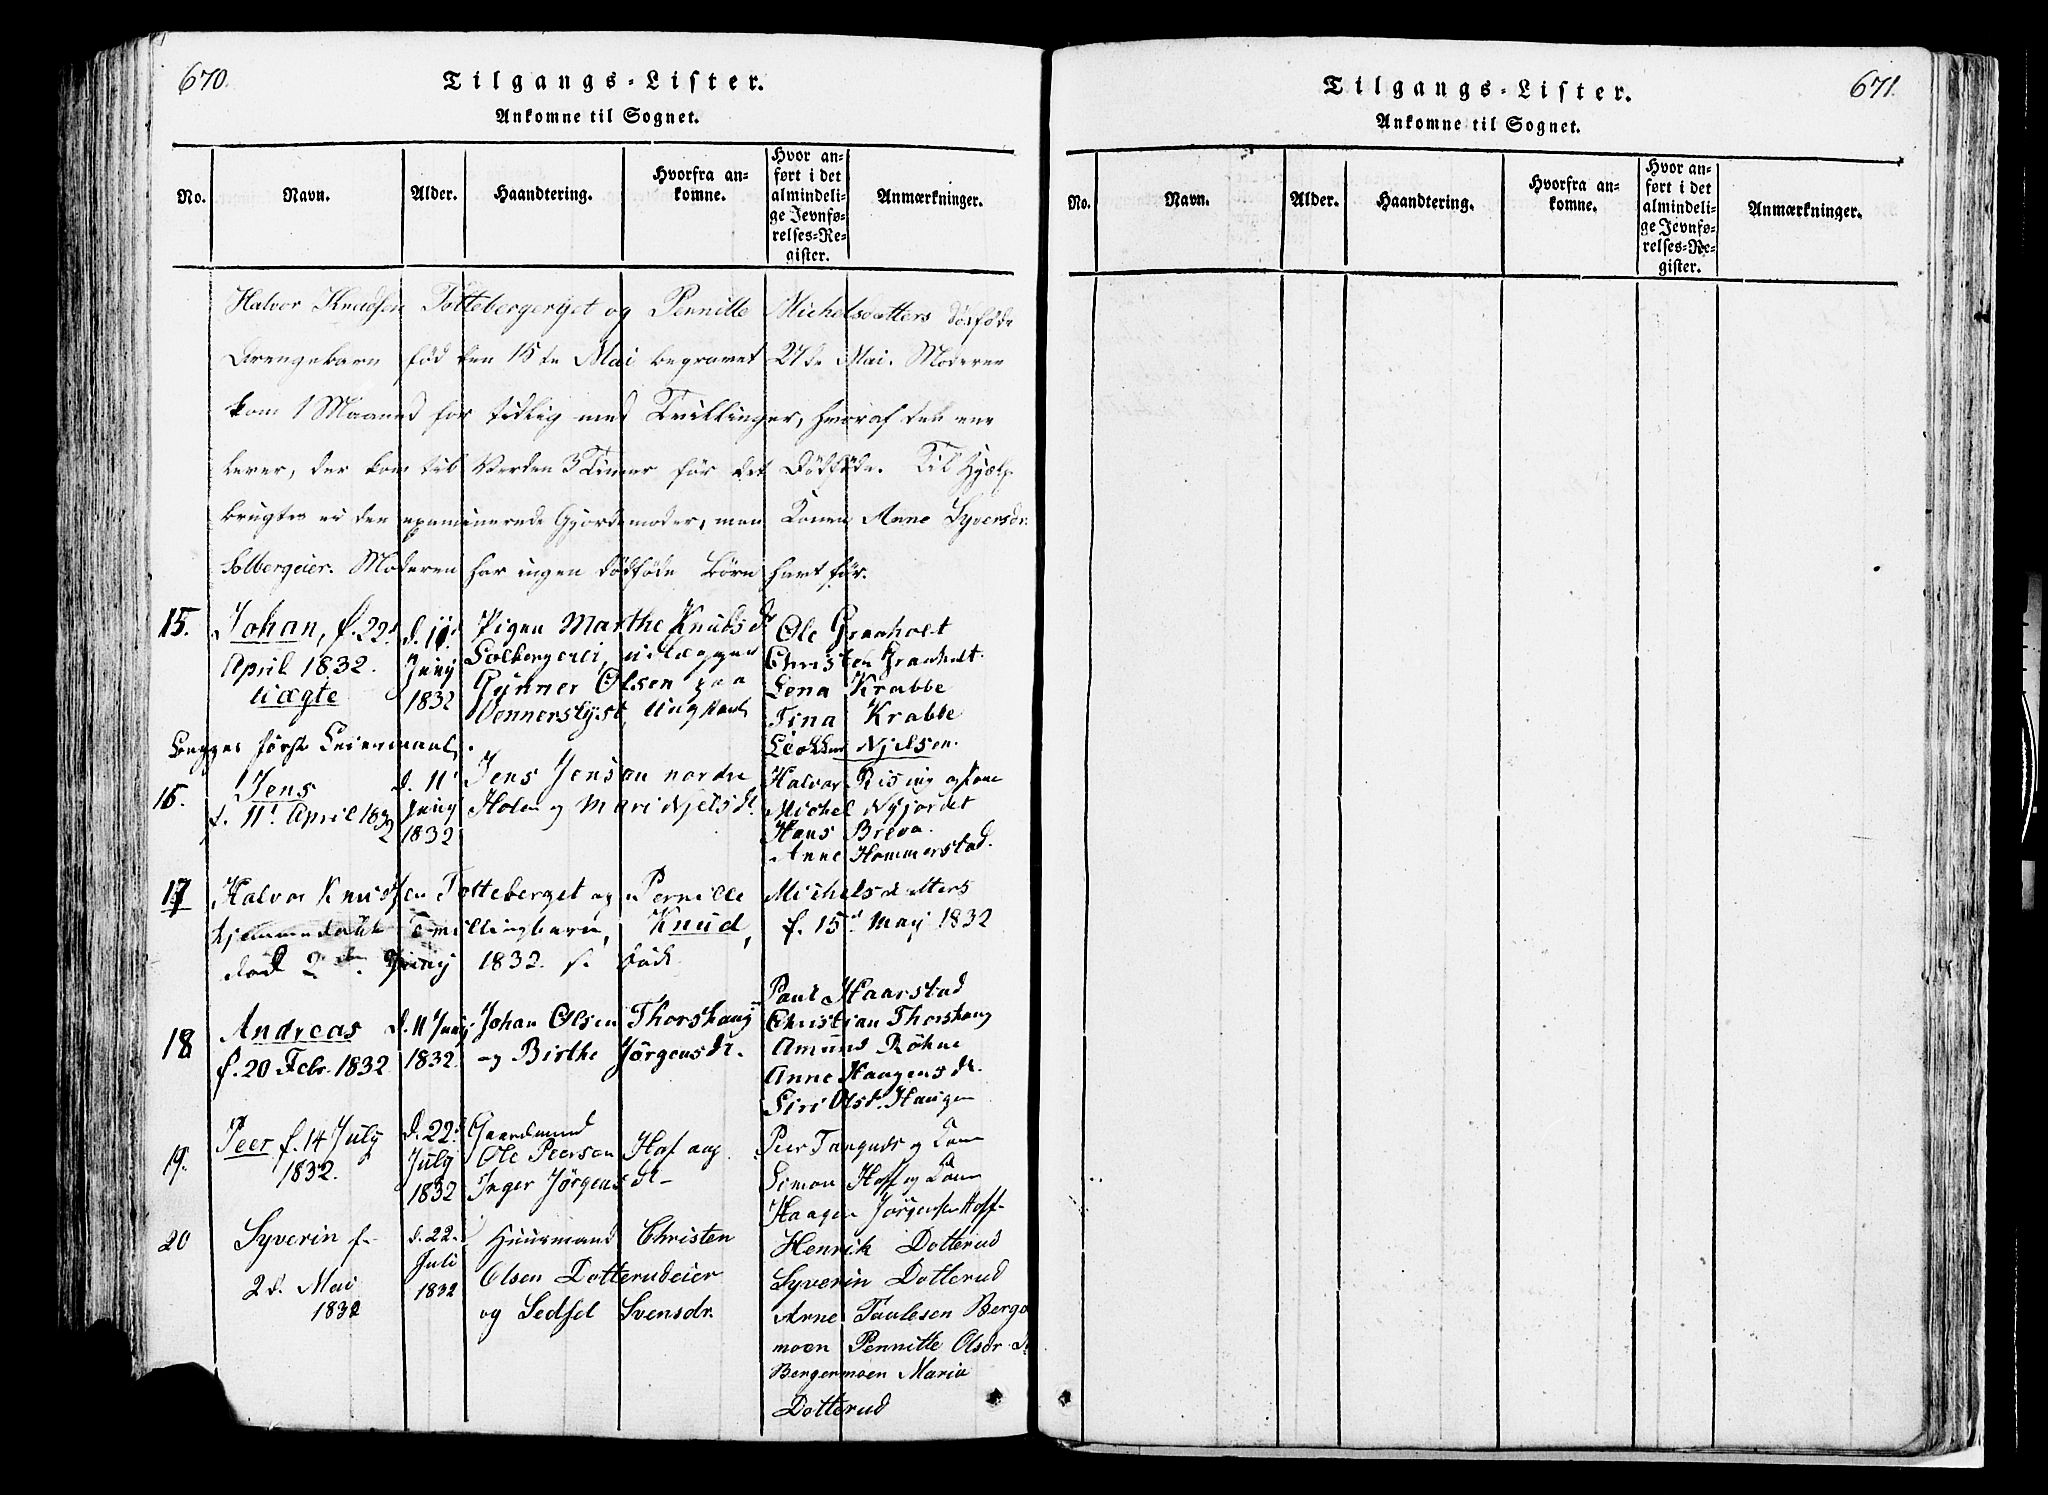 670.
Tilgangs-Lister.
Ankomne til Sognet.
No.
Navn.
Alder.
Haandtering.
Hvorfra an-
komne.
Hvor an-
ført i det
almindeli-
ge Jevnfø-
relses-Re-
gister.
Anmærkninger.
Halvor Knudsen Tottebergeriet og Pernille Michelsdatters dødføde
Drengebarn født den 15de Mai begravet 27de Mai. Moderen
kom 1 Maaned for tidlig med Tvillinger, hvoraf det ene
lever, der kom til Verden 3 Timer før det Dødføde. Til Hjælp
brugtes ei den examinerede Gjordemoder, men Konen Anne Syversdr.
Solbergeier. Moderen har ingen dødføde Børn havt før.
15.
Johan, f. 22d
April 1832.
uægte
d. 11t
Juny
1832
Pigen Marthe Knudsdr
Solbergeiei, udlægger
Gunner Olsen paa
Vennerslyst, Ungkarl
Begges første Leiermaal.
Ole Graaholt
Christen Graaholt.
Lena Krabbe
Tina Krabbe
Njelsen.
16.
Jens
f. 11t April 1832
d. 11t
Juny
1832
Jens Jensen nordre
Holen og Mari Njelsdr.
Halvor Rising og Kone
Michel Nyjordet
Hans Breva.
Anne Hommerstad.
17
Halvor Knudsen Totteberget og Pernille Michelsdatters
hjemmedøbte Tvillingbarn, Knud, f. 15d May 1832
død 2den Juny 1832. f. født
18
Andreas
f. 20 Febr. 1832
d. 11 Juny
1832.
Johan Olsen Thorshaug
og Birthe Jørgensdr.
Paul Haarstad
Christian Thorshaug
Amund Røhne
Anne Haagensdr.
Siri Olsd. Haugen
19.
Peer f. 14 July
1832.
d. 22d
July
1832
Gaardmand
Ole Peersen Hof og
Inger Jørgensdr
Peer Tangnæs og Kone
Simon Hoff og Kone
Haagen Jørgensen Hoff
20
Syverin f.
2d. Mai
1832
d. 22.
Juli
1832
Huusmand Christen
Olsen Dotterudeier
og Sedsel Svensdr.
Henrik Dotterud
Syverin Dotterud
Arne Paulsen Berger
moen Pernille Olsdr
Bergermoen Maria
Dotterud
671.
Tilgangs-Lister.
Ankomne til Sognet.
No.
Navn.
Alder.
Haandtering.
Hvorfra an-
komne.
Hvor an-
ført i det
almindeli-
ge Jevnfø-
relses-Re-
gister.
Anmærkninger.